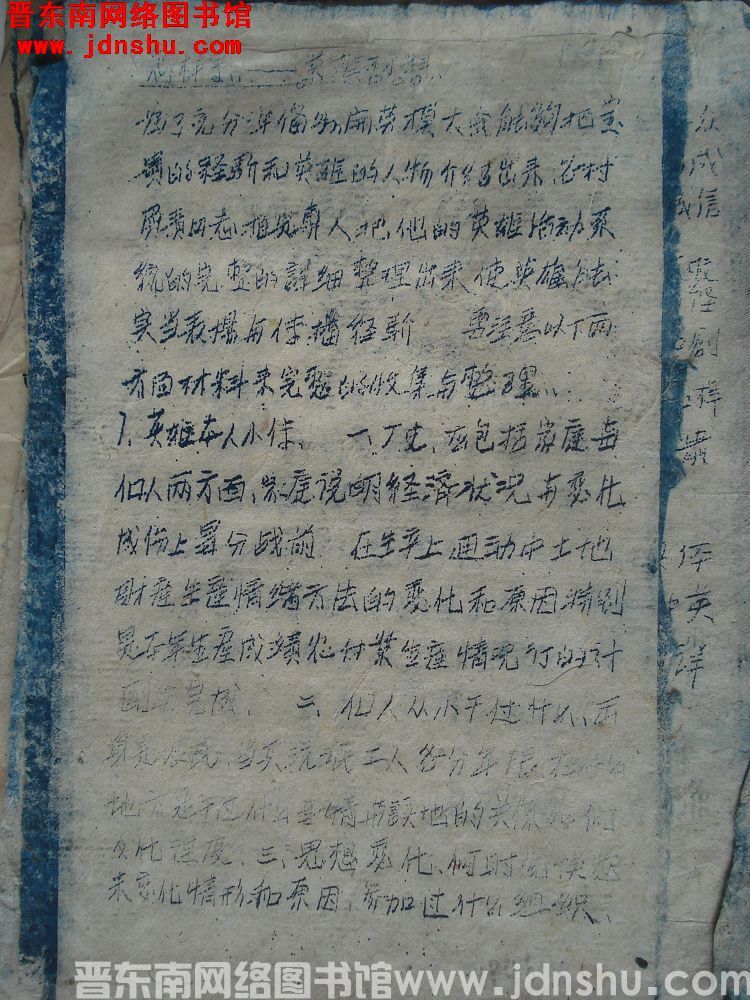 晋东南网络图书馆
www.jdnshu.com
为了充分准备召开英模大会能够把宝
贵的经验和英雄的人物介绍出来各村
负责同志指定专人把他的英雄活动系
统的完整的詳细整理出来使英雄
实当表揚与传播经验 要注意以下两
方面材料来完整的收集与整理
1、英雄本人小传、 一、历史、应包括家庭与
个人两方面、家庭说明经濟状况与变化
成份上昇分战前 在生产上运动中土地
財產生産情绪方法的变化和原因特别
是今年生産成績农付業生産情况订的计
划与完成、 二、個人从小干过什么、
身是农民、当兵流氓工人各分年限在
地方还干过什么事情与該地的关係
文化程度、三、思想变化、何时
来变化情形和原因、参加过什么组织、
众
成
信
创
样
英
詳
晋东南网络图书馆www.jdnshu.com